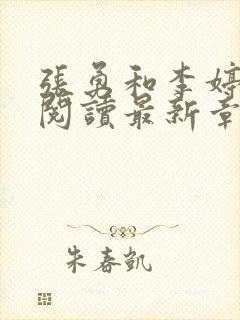 張勇和李婷
閱讀最新章
朱春凱